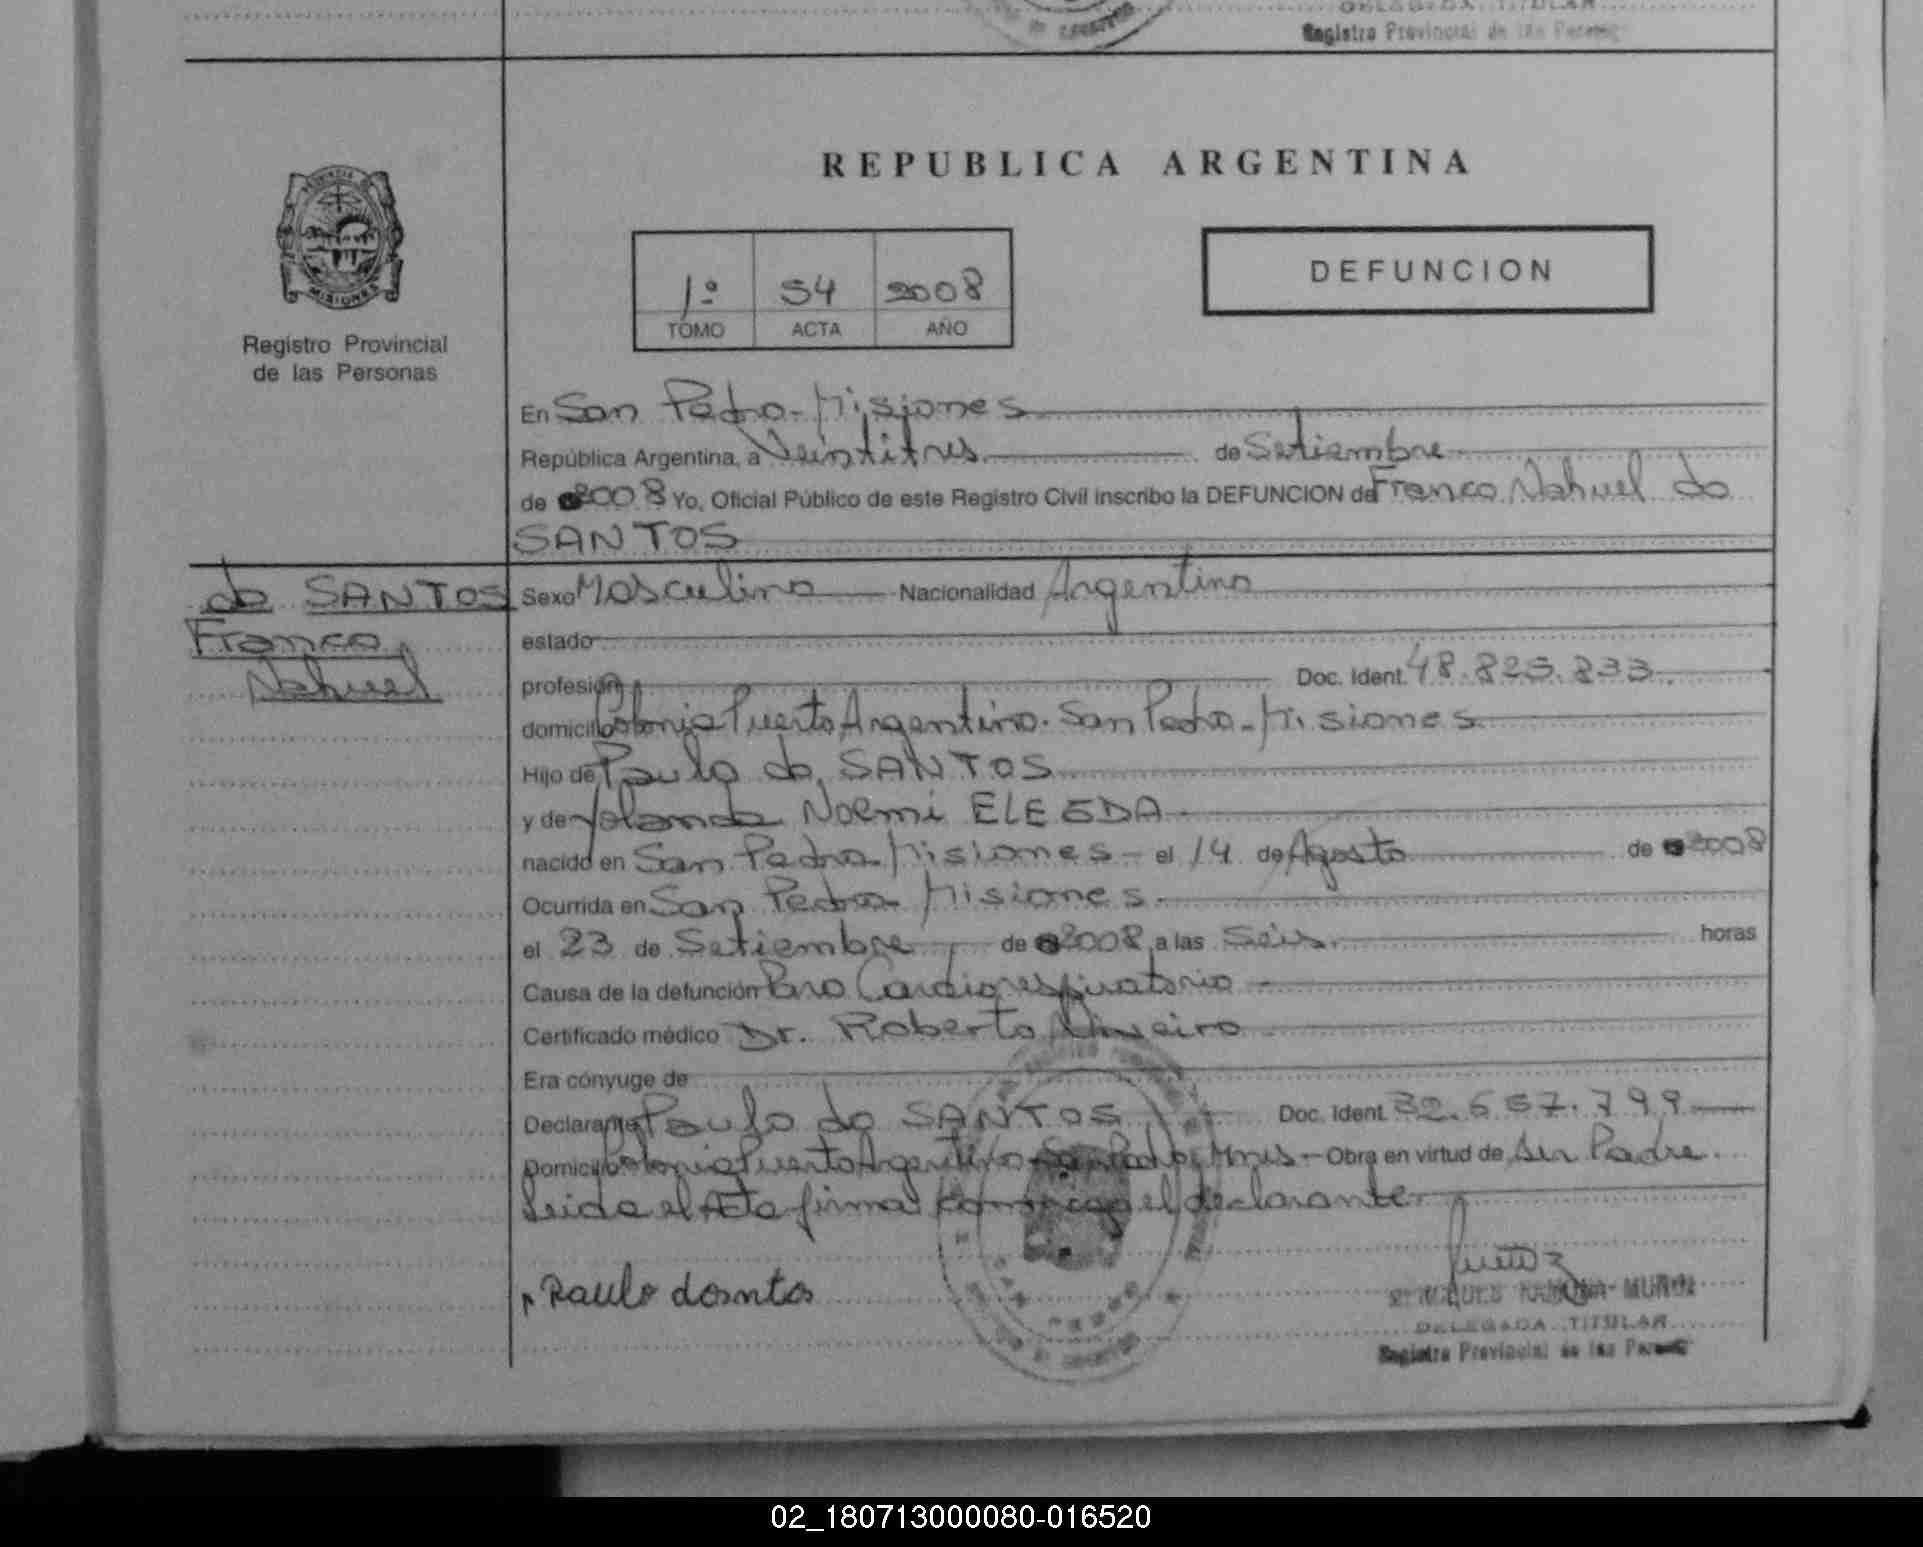 DELEGADA TITULAR
Registro Provincial de las Person
REPUBLICA ARGENTINA
PROVINCIA DE
MISIONES
Registro Provincial
de las Personas
1º 54 2008
TOMO ACTA AÑO
DEFUNCION
En San Pedro - Misiones
República Argentina, a Veintitres de Setiembre
de 2008 Yo, Oficial Público de este Registro Civil inscribo la DEFUNCION de Franco Nahuel do
SANTOS
do SANTOS
Franco
Nahuel
Sexo Masculino Nacionalidad Argentino
estado
profesión Doc. Ident. 48.823.833
domicilio Colonia Puerto Argentino. San Pedro - Misiones
Hijo de Paulo do SANTOS
y de Yolanda Noemi
nacido en San Pedro - Misiones - el 14 de Agosto de 2008
Ocurrida en San Pedro - Misiones
el 23 de Setiembre de 2008, a las Seis horas
Causa de la defunción Paro Cardiorespiratorio
Certificado médico Dr. Roberto
Era cónyuge de
Declarante Paulo do SANTOS Doc. Ident. 32.657.799
Domicilio Colonia Puerto Argentino - San Pedro, Mnes - Obra en virtud de ser Padre
Leida el Acta firma conmigo el declarante
Paulo dosntos
RAMONA MUROZ
DELEGADA TITULAR
Registro Provincial de las Person
02_180713000080-016520